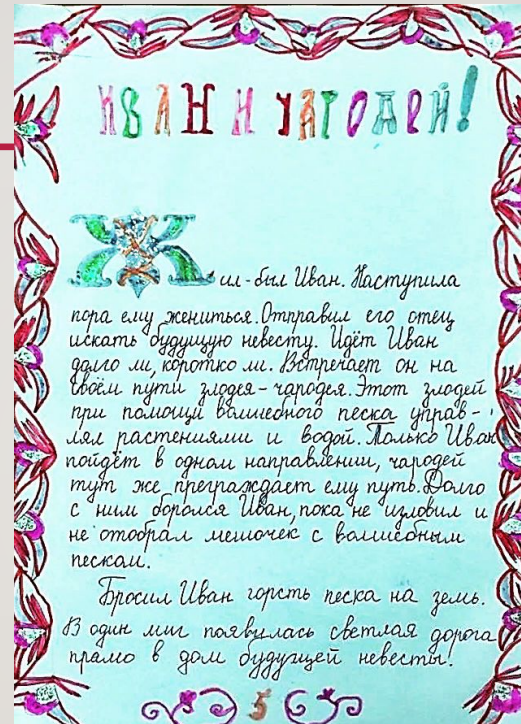 ИВАН И ЧАРОДЕЙ!
Жил-был Иван. Наступила
пора ему жениться. Отправил его отец
искать будущую невесту. Идёт Иван
долго ли, коротко ли. Встречает он на
своём пути злодея-чародея. Этот злодей
при помощи волшебного песка управ-
лял растениями и водой. Только Иван
пойдёт в одном направлении, чародей
тут же преграждает ему путь. Долго
с ним боролся Иван, пока не изловил и
не отобрал мешочек с волшебным
песком.
Бросил Иван горсть песка на земь.
В один миг появилась светлая дорога
прямо в дом будущей невесты.
5